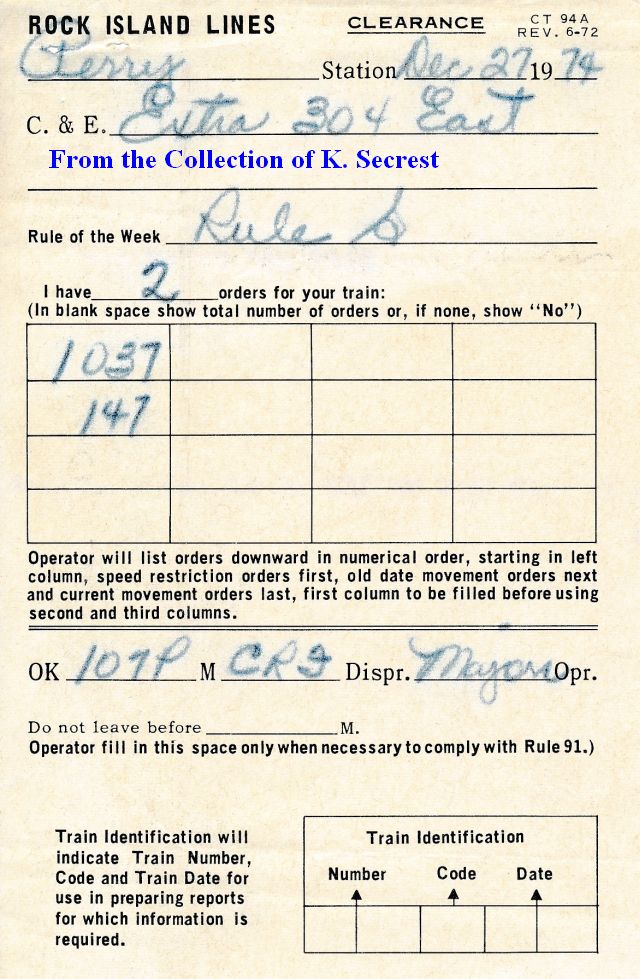 ROCK ISLAND LINES CLEARANCE CT 94A
REV. 6-72
Perry Station Dec 27 19 74
C. & E. Extra 304 East
From the Collection of K. Secrest
Rule of the Week Rule S
I have 2 orders for your train:
(In blank space show total number of orders or, if none, show "No")
1037
147
Operator will list orders downward in numerical order, starting in left
column, speed restriction orders first, old date movement orders next
and current movement orders last, first column to be filled before using
second and third columns.
OK 107P M CRS Dispr. Majors Opr.
Do not leave before M.
Operator fill in this space only when necessary to comply with Rule 91.)
Train Identification will
indicate Train Number,
Code and Train Date for
use in preparing reports
for which information is
required.
Train Identification
Number Code Date